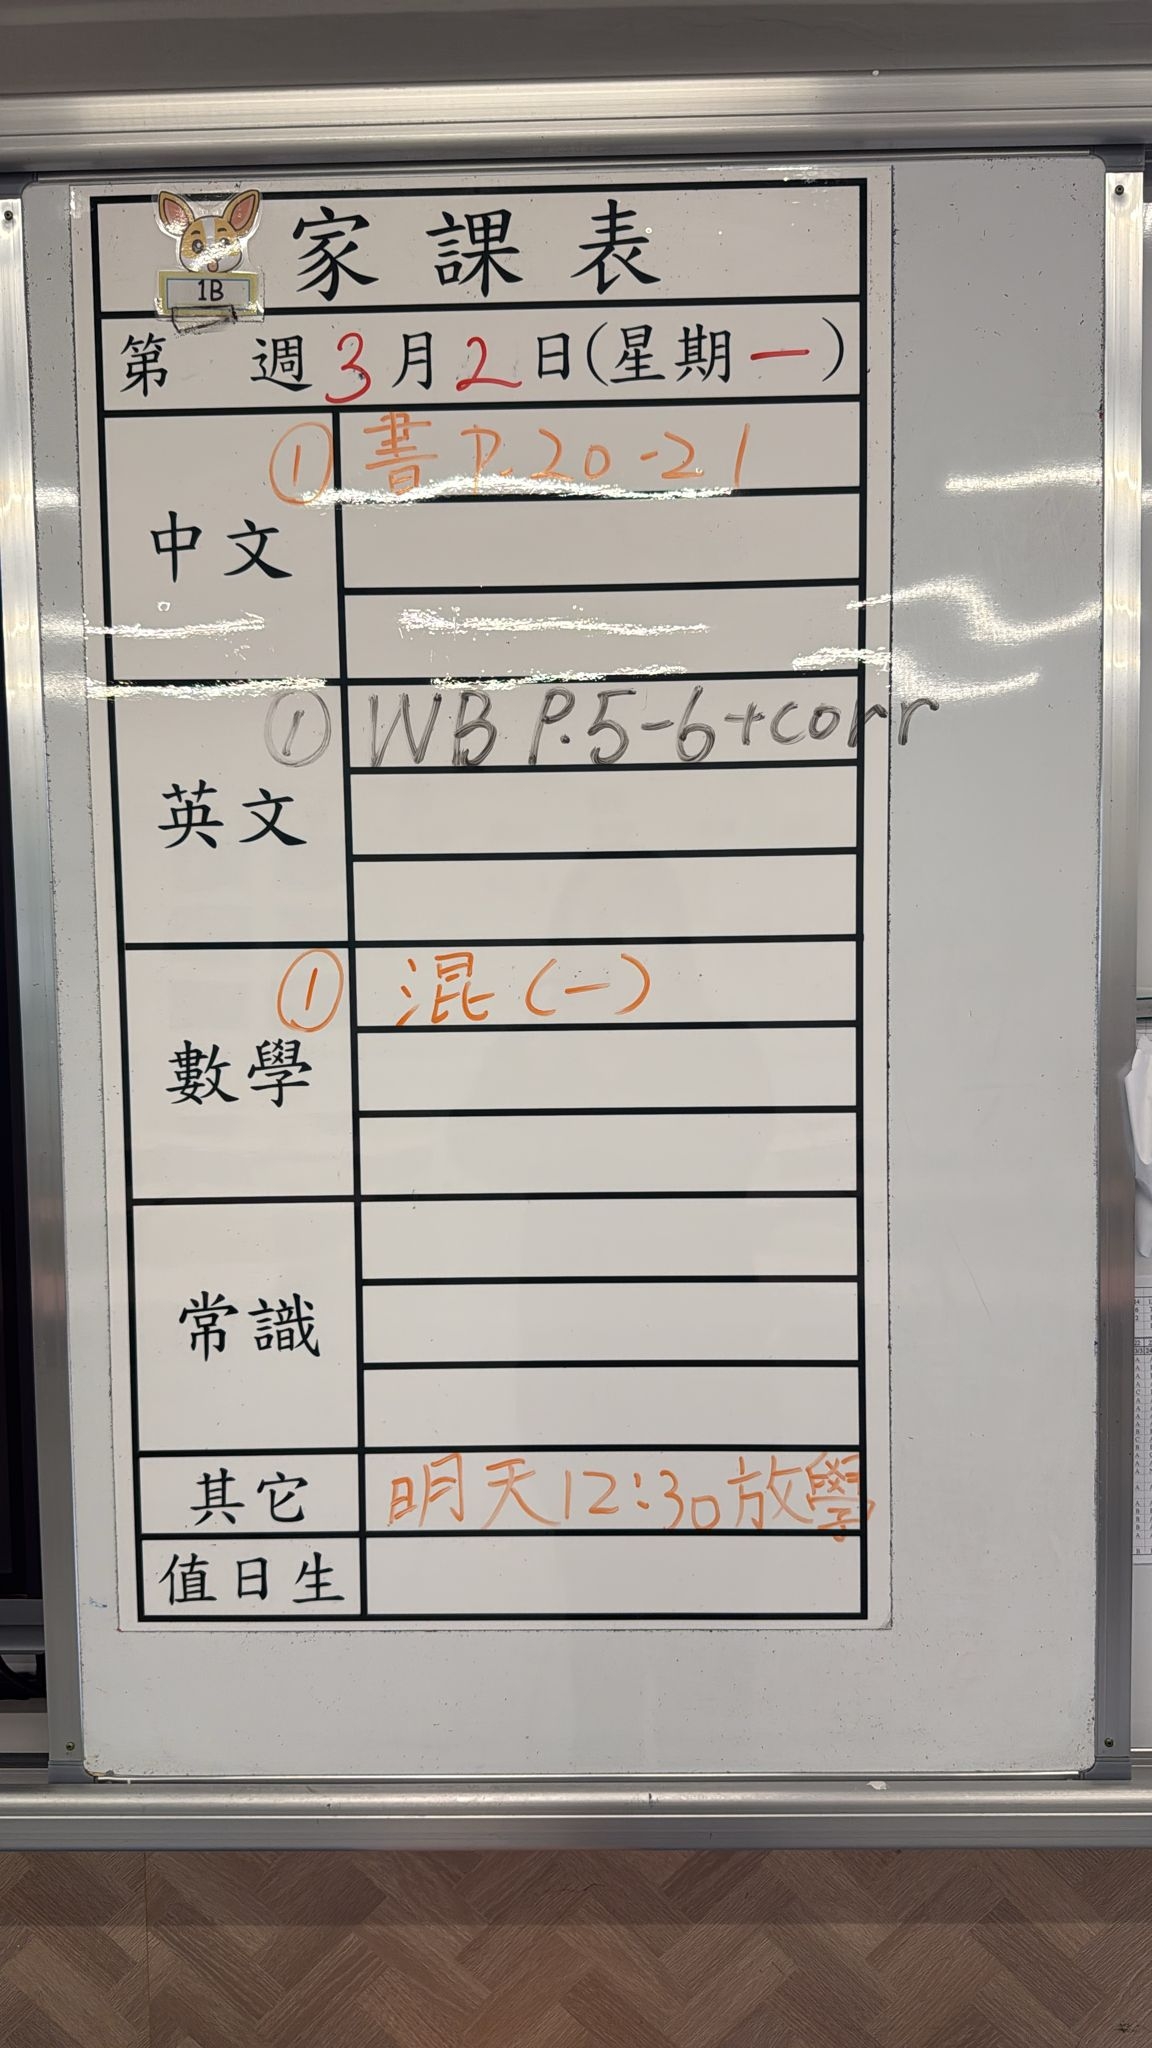 家課表
1B
第 週3月2日(星期一)
中文
① 書P.20-21
英文
① WB P.5-6+corr
數學
① 混(一)
常識
其它
明天12:30放學
值日生